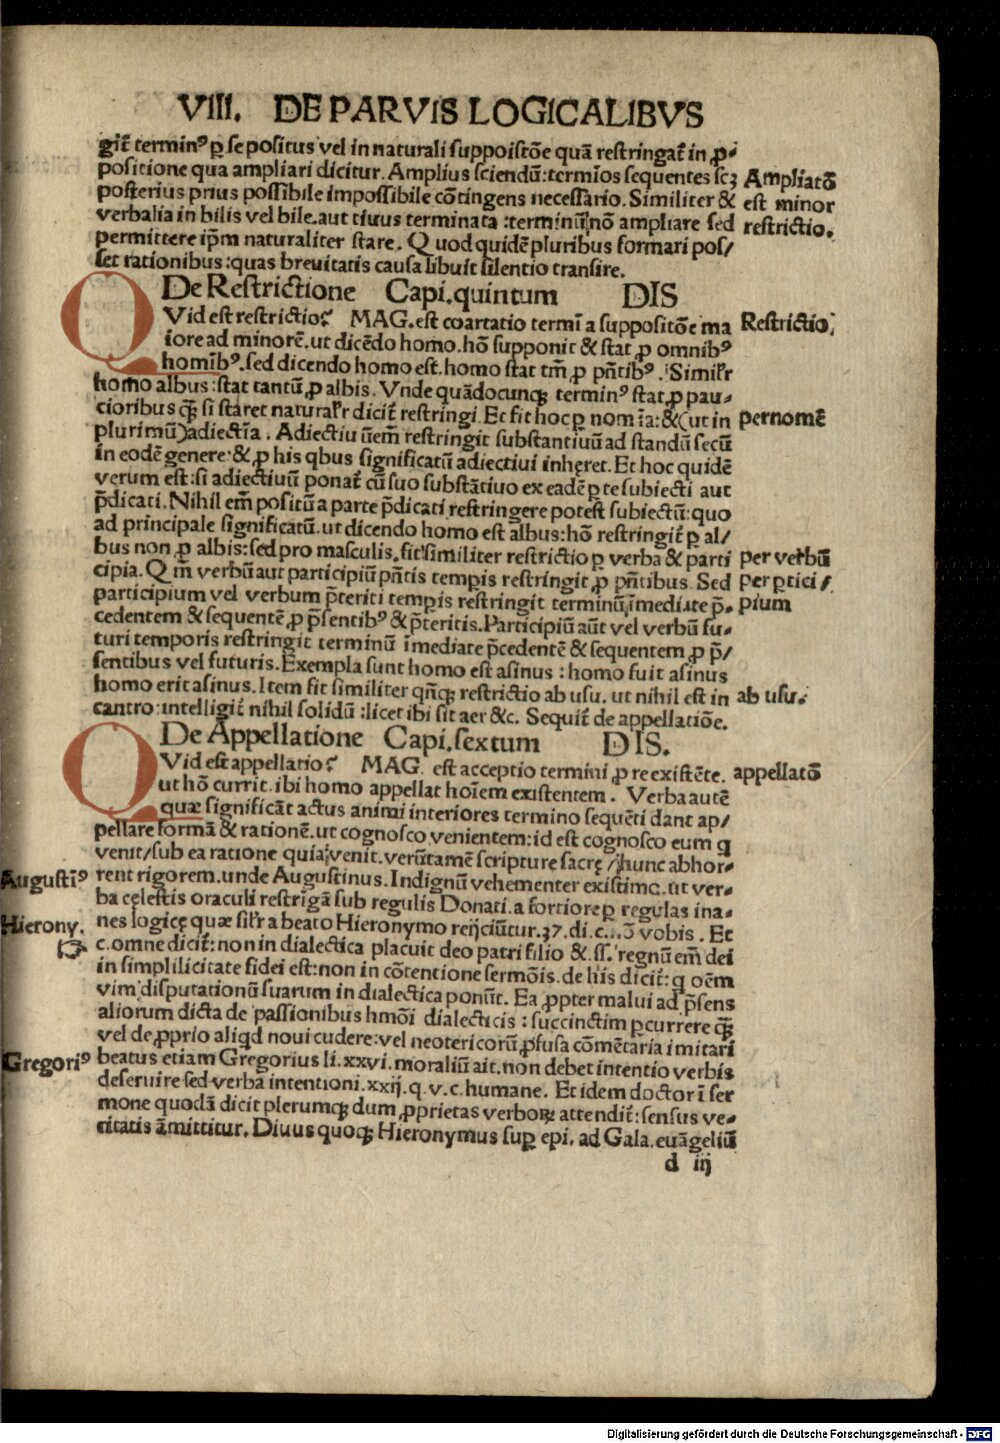 VIII. DE PARVIS LOGICALIBVS
git̄ terminꝰ ꝑ se positus vel in naturali suppoistōe quā restringat̄ in ꝓ-
positione qua ampliari dicitur. Amplius sciendū: termīos sequentes scȝ
Ampliatō
posterius prius possibile impossibile cōtingens necessario. Similiter &
est minor
verbalia in bilis vel bile. aut tiuus terminata : terminū nō ampliare sed
restrictio.
permittere ip̄m naturaliter stare. Quod quidē pluribus formari pos/
set rationibus: quas breuitatis causa libuit silentio transire.
De Restrictione Capi. quintum DIS
QVid est restrictio? MAG. est coartatio termī a suppositōe ma
Restrictio,
iore ad minorē. ut dicēdo homo. hō supponit & stat ꝓ omnibꝰ
homībꝰ. sed dicendo homo est. homo stat tm̄ ꝓ pn̄tibꝰ. Similr̄
homo albus: stat tantū ꝓ albis. Vnde quādocunqꝫ terminꝰ stat ꝓ pau-
cioribus qꝫ̄ si staret natural̄r dicit̄ restringi. Et fit hoc ꝑ nom īa: & (ut in
pernomē
plurimū) adiectīa. Adiectiuūem̄ restringit substantiuū ad standū secū
in eodē genere: & ꝓ his qbus significatū adiectiui inheret. Et hoc quidē
verum est: si adiectiuū ponat̄ cū suo substātiuo ex eadē ꝑte subiecti aut
p̄dicati. Nihil em̄ positū a parte p̄dicati restringere potest subiectū: quo
ad principale significatū. ut dicendo homo est albus: hō restringit̄ ꝑ al/
bus non ꝓ albis: sed pro masculis. fit similiter restrictio ꝑ verba & parti
per verbū
cipia. Qm̄ verbū aut participiū pn̄tis tempis restringit ꝓ pn̄tibus. Sed
per ꝑtici/
participium vel verbum p̄teriti tempis restringit terminū īmediate p̄-
pium
cedentem & sequentē ꝓ p̄sentibꝰ & p̄teritis. Participiū aūt vel verbū fu-
turi temporis restringit terminū īmediate p̄cedentē & sequentem ꝓ p̄/
sentibus vel futuris. Exempla sunt homo est asinus : homo fuit asinus
homo erit asinus. Item fit similiter qn̄qꝫ restrictio ab usu. ut nihil est in
ab usu.
cantro: intelligit̄ nihil solidū : licet ibi sit aer &c. Sequit̄ de appellatiōe.
De Appellatione Capi. sextum DIS.
QVid est appellatio? MAG. est acceptio termini ꝓ re existēte.
appellatō
ut hō currit. ibi homo appellat hoīem existentem. Verba autē
quæ significāt actus animi interiores termino sequēti dant ap/
pellare formā & rationē. ut cognosco venientem: id est cognosco eum q
venit/sub ea ratione quia venit. verūtamē scripture sacrę / hunc abhor-
Augustīꝰ
rent rigorem. unde Augustinus. Indignū vehementer existimo. ut ver-
ba celestis oraculi restrigā sub regulis Donati. a fortiore ꝑ regulas ina-
Hierony.
nes logicę quæ sil̄r a beato Hieronymo reijciūtur. 37. di. c... vobis. Et
c. omne dicit̄: non in dialectica placuit deo patri filio & .ss. regnū em̄ dei
in simplilicitate fidei est: non in cōtentione sermōis. de his dicit̄: q oēm
vim disputationū suarum in dialectica ponūt. Ea ꝓpter malui ad p̄sens
aliorum dicta de passionibus hmōi dialecticis : succinctim ꝑcurrere qꝫ̄
vel de ꝓprio aliqd noui cudere: vel neotericorū ꝓfusa cōmētaria imitari
Gregoriꝰ
beatus etiam Gregorius li. xxvi. moraliū ait. non debet intentio verbis
deseruire sed verba intentioni. xxij. q. v. c. humane. Et idem doctor ī ser
mone quodā dicit plerumqꝫ dum ꝓprietas verboꝝ attendit̄: sensus ve-
ritatis āmittitur. Diuus quoqꝫ Hieronymus suꝑ epi. ad Gala. euāgeliū
d iij
Digitalisierung gefördert durch die Deutsche Forschungsgemeinschaft - DFG